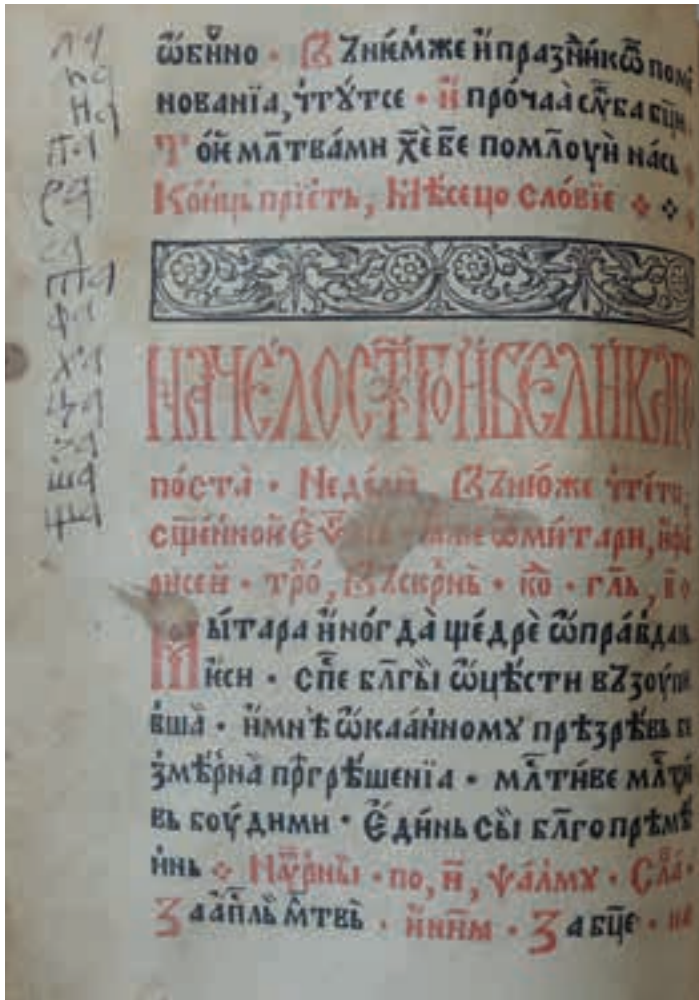 ла
на
па
ра
са
та
фа
ха
ца
ша
ща
ѡбы́чно · Въ́ нїе́мже и҆ пра́зникѡ
нова́нїа, чту́тсе · и҆ про́чаа слꙋ́ба бц҃и
То́ѥ мл҃твами хе҃ бе҃ помл҃оуи на́сь
Коньць прїе́ть, Мѣ́сецо сло́вїе
НАЧЕЛО СТ҃ГО И ВЕЛИКАГО
по́ста̀ · Неде́лѧ Въ ню́же чте́тсе
сщ҃е́нной Еѵⷢ ѡ ми́тари, и҆ фа
рисеи · тро́, Въскр҃нь · ко · гль,
Мы́тара и҆но́гда̀ ще́дрѐ ѡпра́вдаль
ѥ҆си · сп҃е бл҃гы̀ ѡцѣ́сти въ́зоупи
вша̀ · и҆ мнѣ̀ ѡкаа́нному прѣзрѣ́вь бе
змѣ́рна̀ прⷢгрѣше́нїа · мл҃ти́ве мл҃ти
вь боу́ди ми · Є҆ди́нь сы́ бл҃гопрѣмѣ́
нь Ꙋ҆́трны · по, н҃, ѱа́лму · Сла́
За а҆пⷭль мл҃твь · и҆ нн҃м · За бц҃е · на